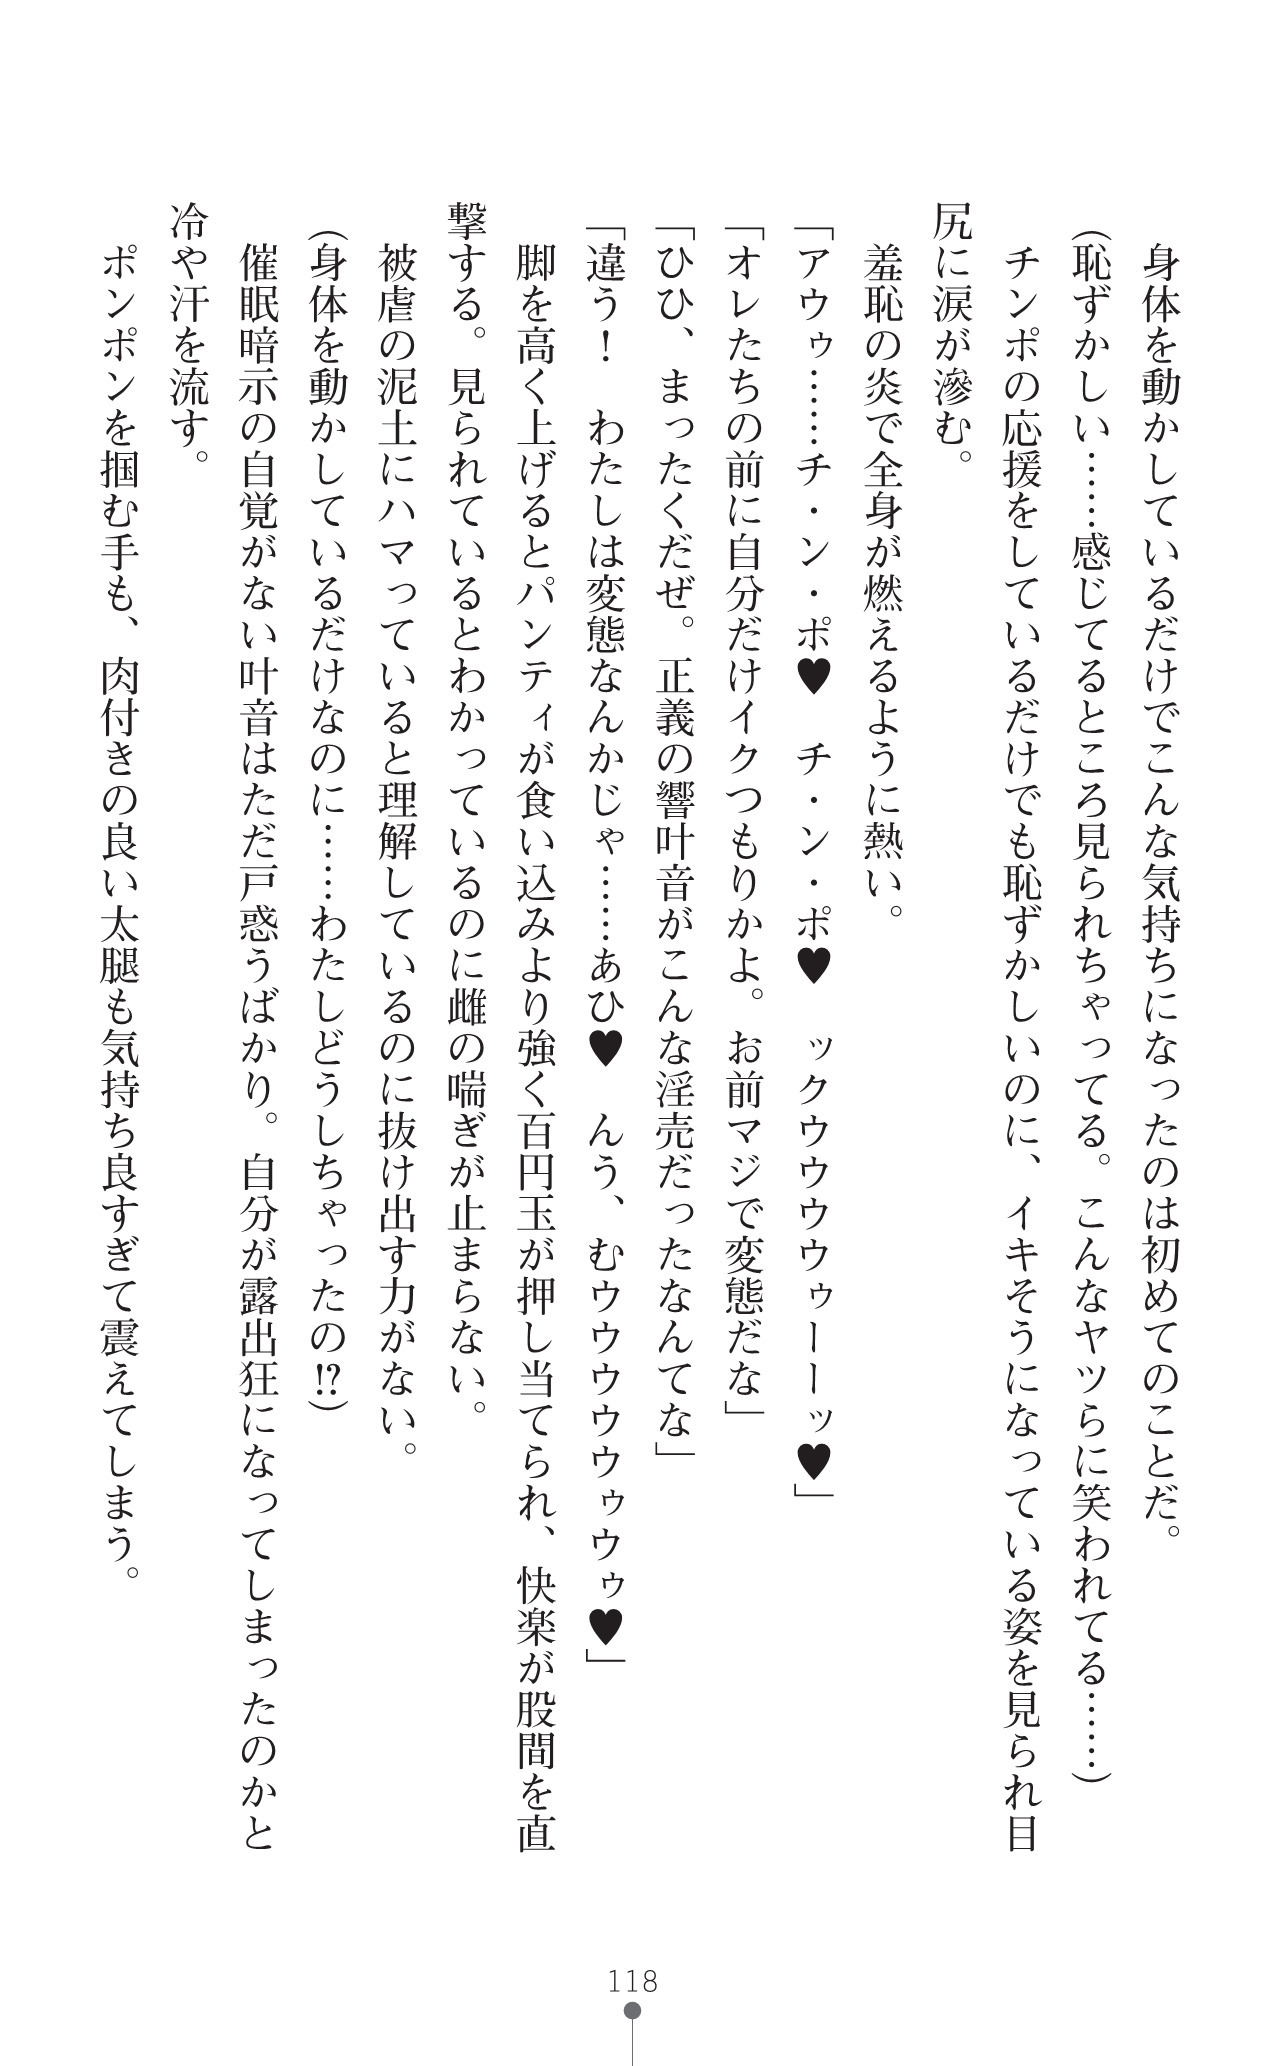 身体を動かしているだけでこんな気持ちになったのは初めてのことだ。
（恥ずかしい……感じてるところ見られちゃってる。こんなヤツらに笑われてる……）
チンポの応援をしているだけでも恥ずかしいのに、イキそうになっている姿を見られ目
尻に涙が滲む。
羞恥の炎で全身が燃えるように熱い。
「アウゥ……チ・ン・ポ♥　チ・ン・ポ♥　ックウウウウゥーーッ♥」
「オレたちの前に自分だけイクつもりかよ。お前マジで変態だな」
「ひひ、まったくだぜ。正義の響叶音がこんな淫売だったなんてな」
「違う！　わたしは変態なんかじゃ……あひ♥　んう、むウウウウウゥウゥ♥」
脚を高く上げるとパンティが食い込みより強く百円玉が押し当てられ、快楽が股間を直
撃する。見られているとわかっているのに雌の喘ぎが止まらない。
被虐の泥土にハマっていると理解しているのに抜け出す力がない。
（身体を動かしているだけなのに……わたしどうしちゃったの!?）
催眠暗示の自覚がない叶音はただ戸惑うばかり。自分が露出狂になってしまったのかと
冷や汗を流す。
ポンポンを掴む手も、肉付きの良い太腿も気持ち良すぎて震えてしまう。
118